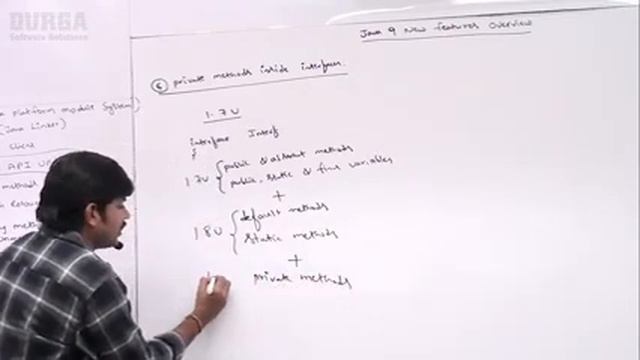 DURGA
Software Solutions
Java 9 New features Overview
⑥ private methods inside interfaces.
1.7V
interface Interf
{
1.7V { public & abstract methods
public, static & final variables
+
1.8V { default methods
static methods
+
private methods
platform module System)
(Java Linker)
Client
API UP
methods